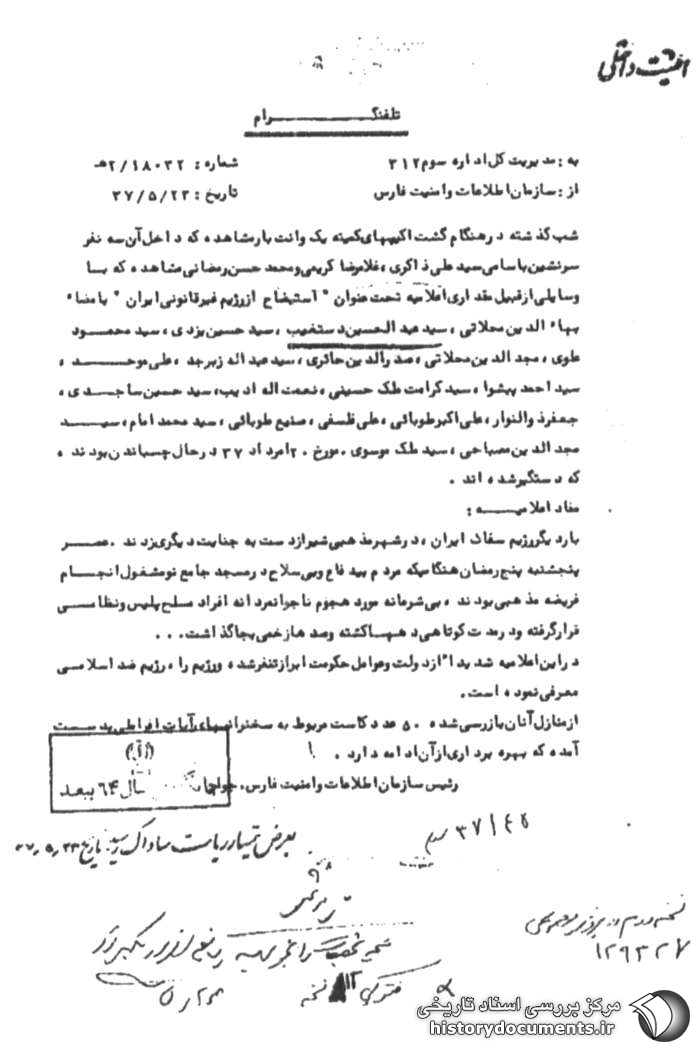 امنیت داخلی
تلفنگرام
به : مدیریت کل اداره سوم ۳۱۲
شماره : ۲/۱۸۰۳۲هـ
از : سازمان اطلاعات و امنیت فارس
تاریخ : ۳۷/۵/۲۳
شب گذشته در هنگام گشت اکیپهای کمیته یک وانت بار مشاهده که داخل آن سه نفر
سرنشین باسامی سید علی ذاکری ، غلامرضا کریمی و محمد حسن رمضانی مشاهده که با
وسایلی از قبیل مقداری اعلامیه تحت عنوان " استیضاح از رژیم غیرقانونی ایران " بامضاء
بهاء الدین محلاتی ، سید عبدالحسین دستغیب ، سید حسین یزدی ، سید محمود
علوی ، مجد الدین محلاتی ، صدرالدین حائری ، سید عبداله زبرجد ، علی موحد ،
سید احمد پیشوا ، سید کرامت ملک حسینی ، نعمت اله ادیب ، سید حسین ساجدی ،
جعفر ذوالنوار ، علی اکبر طوبائی ، علی فلسفی ، صنیع طوبائی ، سید محمد امام ، سید
مجد الدین مصباحی ، سید ملک موسوی . مورخ ۲۰ امرداد ۳۷ در حال چسباندن بودند ،
که دستگیر شده اند .
مفاد اعلامیه :
بار دیگر رژیم سفاک ایران ، در شهر مذهبی شیراز دست به جنایت دیگری زدند . عصر
پنجشنبه پنج رمضان هنگامیکه مردم بیدفاع و بی سلاح در مسجد جامع نو مشغول انجام
فریضه مذهبی بودند ، بی شرمانه مورد هجوم ناجوانمردانه افراد مسلح پلیس و نظامی
قرار گرفته و در مدت کوتاهی دهها کشته و صدها زخمی بجا گذاشت . . .
در این اعلامیه شدیداً از دولت و عوامل حکومت ابراز تنفر شده و رژیم را ، رژیم ضد اسلامی
معرفی نموده است .
از منازل آنان بازرسی شده ۵۰ عدد کاست مربوط به سخنرانیهای آیات افراطی بدست
آمده که بهره برداری از آن ادامه دارد .
رئیس سازمان اطلاعات و امنیت فارس .
سال ۶۴ ببعد
بعرض تیمسار ریاست ساواک رسید تاریخ ۳۷،۵،۲۳
نسخه دوم در پرونده
۱۲۹۳۲۷
مرکز بررسی اسناد تاریخی
historydocuments.ir